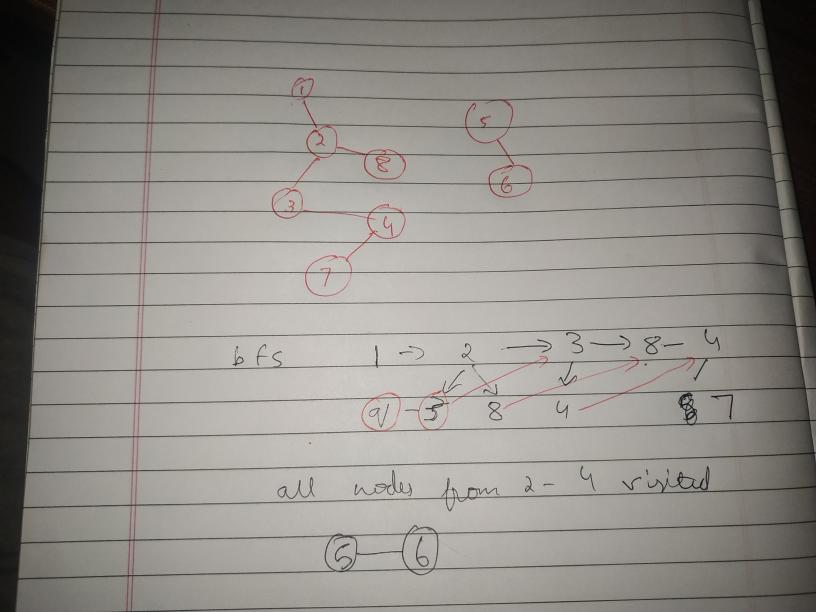 1
2
8
5
3
6
4
7
bfs 1 → 2 → 3 → 8 – 4
q/ – 3 8 4 7
all nodes from 2 – 4 visited
5 — 6